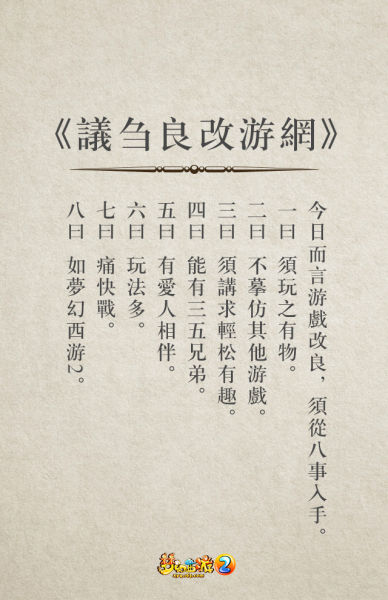 《網游改良刍議》
今日而言游戲改良，須從八事入手。
一曰 須玩之有物。
二曰 不摹仿其他游戲。
三曰 須講求輕松有趣。
四曰 能有三五兄弟。
五曰 有愛人相伴。
六曰 玩法多。
七曰 痛快戰。
八曰 如夢幻西游2。
梦幻西游2